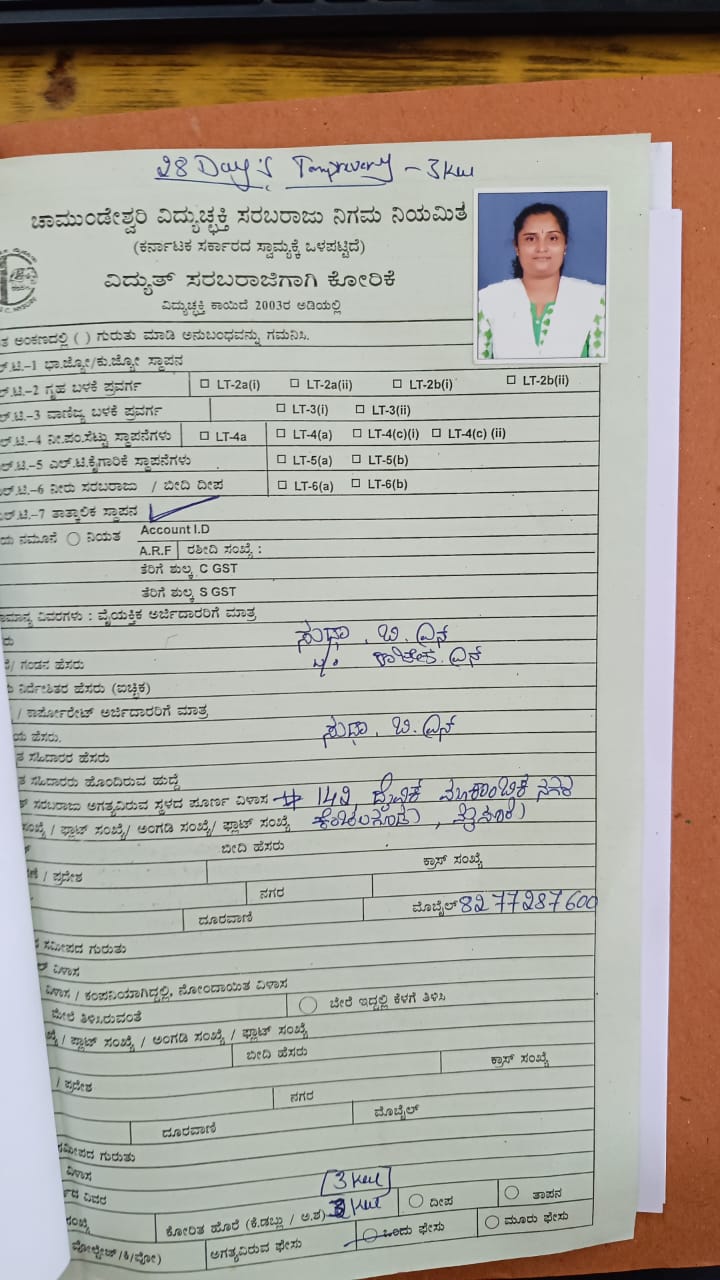 28 Day's Tempravary - 3 KW
ಚಾಮುಂಡೇಶ್ವರಿ ವಿದ್ಯುಚ್ಛಕ್ತಿ ಸರಬರಾಜು ನಿಗಮ ನಿಯಮಿತ
(ಕರ್ನಾಟಕ ಸರ್ಕಾರದ ಸ್ವಾಮ್ಯಕ್ಕೆ ಒಳಪಟ್ಟಿದೆ)
ವಿದ್ಯುತ್ ಸರಬರಾಜಿಗಾಗಿ ಕೋರಿಕೆ
ವಿದ್ಯುಚ್ಛಕ್ತಿ ಕಾಯಿದೆ 2003ರ ಅಡಿಯಲ್ಲಿ
ಅಂಕಣದಲ್ಲಿ ( ) ಗುರುತು ಮಾಡಿ ಅನುಬಂಧವನ್ನು ಗಮನಿಸಿ.
ಲ್.ಟಿ.-1 ಭಾ.ಜ್ಯೋ/ಕು.ಜ್ಯೋ ಸ್ಥಾಪನ
ಲ್.ಟಿ.-2 ಗೃಹ ಬಳಕೆ ಪ್ರವರ್ಗ LT-2a(i) LT-2a(ii) LT-2b(i) LT-2b(ii)
ಲ್.ಟಿ.-3 ವಾಣಿಜ್ಯ ಬಳಕೆ ಪ್ರವರ್ಗ LT-3(i) LT-3(ii)
ಲ್.ಟಿ.-4 ನೀ.ಪಂ.ಸೆಟ್ಟು ಸ್ಥಾಪನೆಗಳು LT-4a LT-4(a) LT-4(c)(i) LT-4(c) (ii)
ಲ್.ಟಿ.-5 ಎಲ್.ಟಿ.ಕೈಗಾರಿಕೆ ಸ್ಥಾಪನೆಗಳು LT-5(a) LT-5(b)
ಲ್.ಟಿ.-6 ನೀರು ಸರಬರಾಜು / ಬೀದಿ ದೀಪ LT-6(a) LT-6(b)
ಲ್.ಟಿ.-7 ತಾತ್ಕಾಲಿಕ ಸ್ಥಾಪನ
ಯ ನಮೂನೆ ನಿಯತ Account I.D
A.R.F ರಶೀದಿ ಸಂಖ್ಯೆ :
ತೆರಿಗೆ ಶುಲ್ಕ C GST
ತೆರಿಗೆ ಶುಲ್ಕ S GST
ಾಮಾನ್ಯ ವಿವರಗಳು : ವೈಯಕ್ತಿಕ ಅರ್ಜಿದಾರರಿಗೆ ಮಾತ್ರ
ರು ಸುಧಾ. ಬಿ. ಎನ್
/ ಗಂಡನ ಹೆಸರು ಎನ್
ನಿರ್ದೇಶಿತರ ಹೆಸರು (ಐಚ್ಛಿಕ)
/ ಕಾರ್ಪೋರೇಟ್ ಅರ್ಜಿದಾರರಿಗೆ ಮಾತ್ರ
ಯ ಹೆಸರು. ಸುಧಾ. ಬಿ. ಎನ್
ತ ಸಹಿದಾರರ ಹೆಸರು
ತ ಸಹಿದಾರರು ಹೊಂದಿರುವ ಹುದ್ದೆ
ಸರಬರಾಜು ಅಗತ್ಯವಿರುವ ಸ್ಥಳದ ಪೂರ್ಣ ವಿಳಾಸ # 142, ಮೂಕಾಂಬಿಕ ನಗರ
ಸಂಖ್ಯೆ / ಫ್ಲಾಟ್ ಸಂಖ್ಯೆ/ ಅಂಗಡಿ ಸಂಖ್ಯೆ/ ಫ್ಲಾಟ್ ಸಂಖ್ಯೆ , ಮೈಸೂರು
ಬೀದಿ ಹೆಸರು
/ ಪ್ರದೇಶ ಕ್ರಾಸ್ ಸಂಖ್ಯೆ
ನಗರ
ದೂರವಾಣಿ ಮೊಬೈಲ್ 8277287600
ಸಮೀಪದ ಗುರುತು
ವಿಳಾಸ
ವಿಳಾಸ / ಕಂಪನಿಯಾಗಿದ್ದಲ್ಲಿ, ನೋಂದಾಯಿತ ವಿಳಾಸ
ಮೇಲೆ ತಿಳಿಸಿರುವಂತೆ ಬೇರೆ ಇದ್ದಲ್ಲಿ ಕೆಳಗೆ ತಿಳಿಸಿ
ಖ್ಯೆ / ಪ್ಲಾಟ್ ಸಂಖ್ಯೆ / ಅಂಗಡಿ ಸಂಖ್ಯೆ / ಫ್ಲಾಟ್ ಸಂಖ್ಯೆ
ಬೀದಿ ಹೆಸರು ಕ್ರಾಸ್ ಸಂಖ್ಯೆ
/ ಪ್ರದೇಶ
ನಗರ
ದೂರವಾಣಿ ಮೊಬೈಲ್
ಸಮೀಪದ ಗುರುತು
ವಿಳಾಸ
ವಿವರ [3 KW]
ಸಂಖ್ಯೆ ಕೋರಿತ ಹೊರೆ (ಕಿ.ಡಬ್ಲು / ಅ.ಶ) 3 KW ದೀಪ ತಾಪನ
ವೋಲ್ಟೇಜ್ /ಕಿ/ವೋ) ಅಗತ್ಯವಿರುವ ಫೇಸು ಒಂದು ಫೇಸು ಮೂರು ಫೇಸು